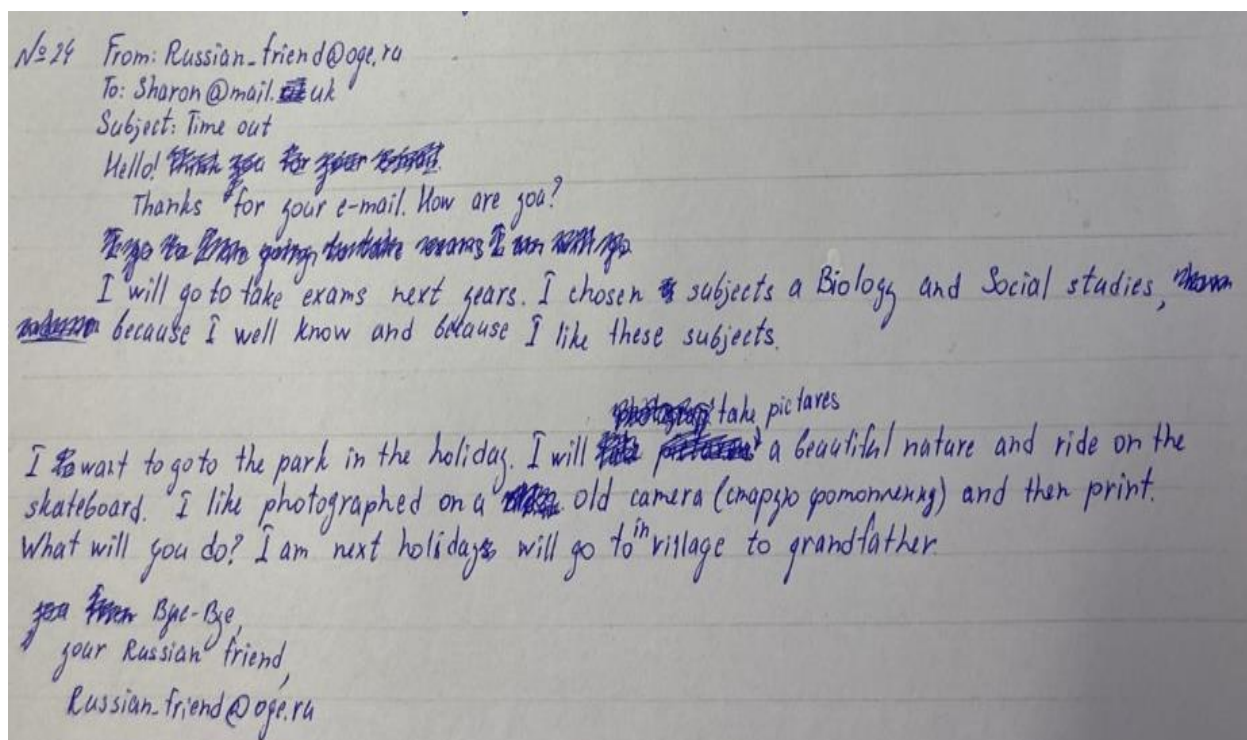 №24 From: Russian_friend@oge.ru
To: Sharon@mail.uk
Subject: Time out
Hello!
Thanks for your e-mail. How are you?
I will go to take exams next years. I chosen subjects a Biology and Social studies,
because I well know and because I like these subjects.
take pictures
I want to go to the park in the holiday. I will a beautiful nature and ride on the
skateboard. I like photographed on a old camera (старую фотопленку) and then print.
What will you do? I am next holidays will go to in village to grandfather.
Bye-Bye,
your Russian friend,
Russian_friend@oge.ru